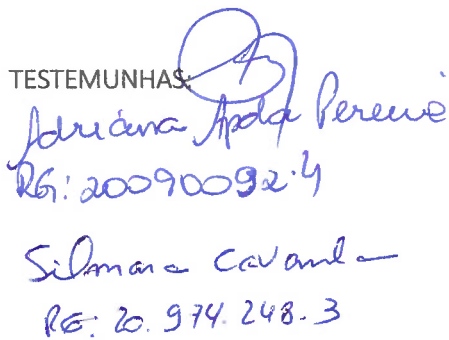 TESTEMUNHAS:
Adriana Apda Pereira
RG: 20090092-4
Silmara
RG: 20.974.248-3